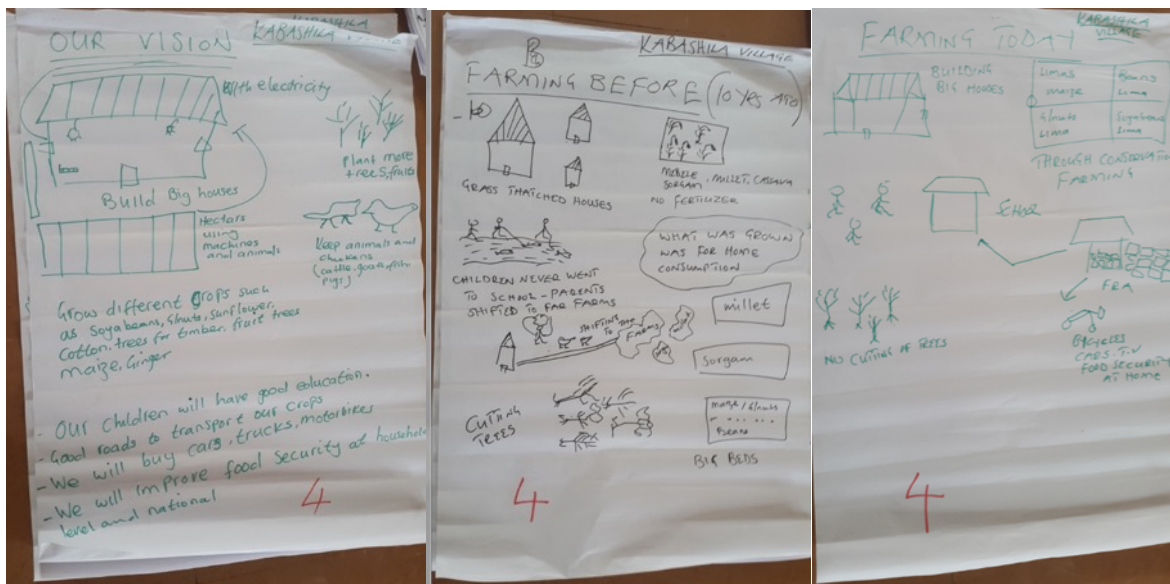 OUR VISION
KABASHIKA
With electricity
Plant more
trees, fruits
Build Big houses
Hectars
using
machines
and animals
Keep animals and
chickens
(cattle, goats, fish
pigs)
Grow different crops such
as Soyabeans, G/nuts, Sunflower,
Cotton, trees for timber, fruit trees
maize, Ginger
- Our Children will have good education.
- Good roads to transport our crops
- We will buy cars, trucks, motorbikes
- We will improve food security at household
level and national
4
KABASHIKA VILLAGE
FARMING BEFORE (10 YRS AGO)
GRASS THATCHED HOUSES
SORGAM, MILLET, CASSAVA
NO FERTILIZER
WHAT WAS GROWN
WAS FOR HOME
CONSUMPTION
CHILDREN NEVER WENT
TO SCHOOL - PARENTS
SHIFTED TO FAR FARMS
millet
SHIFTING TO THE
FARMS
Sorgam
CUTTING
TREES
maize / G/nuts
Beans
BIG BEDS
4
KABASHIKA
VILLAGE
FARMING TODAY
BUILDING
BIG HOUSES
Limas
maize
Beans
Lima
G/nuts
Lima
Soyabeans
Lima
THROUGH CONSERVATION
FARMING
SCHOOL
FRA
NO CUTTING OF TREES
BICYCLES
CARS. T.V
FOOD SECURITY
AT HOME
4